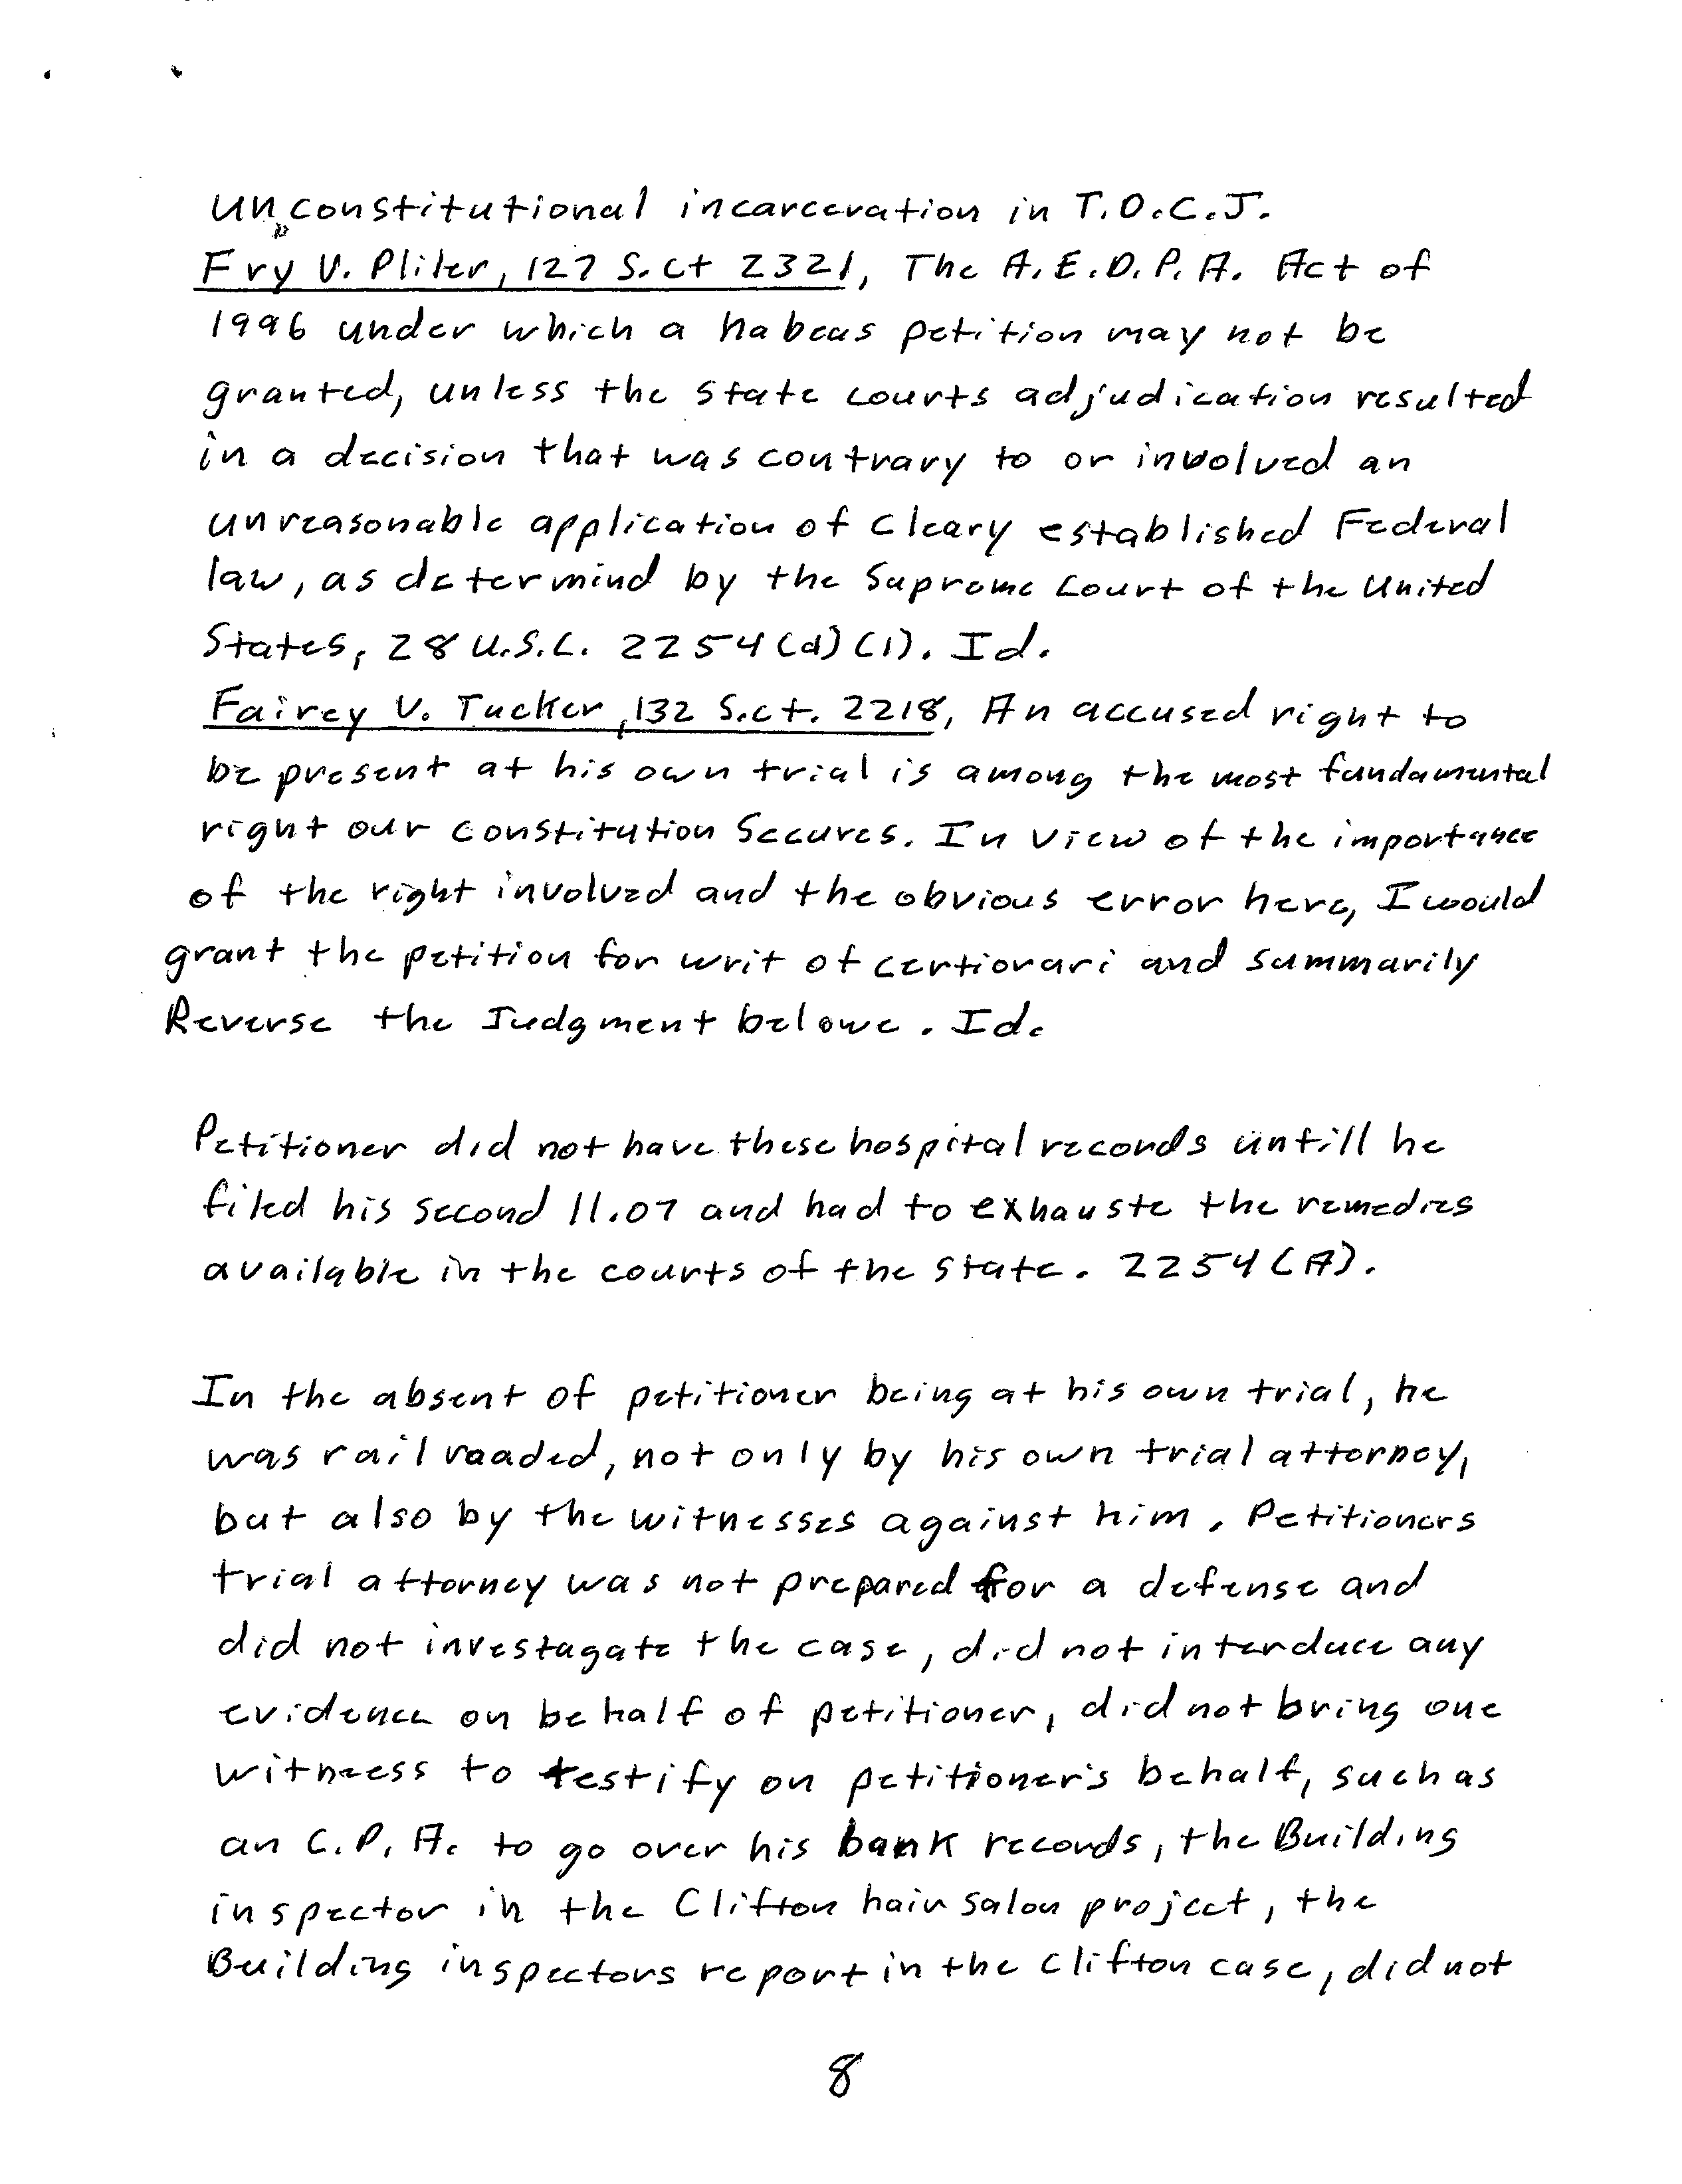 unconstitutional incarceration in T.D.C.J.
Fry V. Pliler, 127 S.ct 2321, The A.E.D.P.A. Act of
1996 under which a habeas petition may not be
granted, unless the state courts adjudication resulted
in a decision that was contrary to or involved an
unreasonable application of Cleary established Federal
law, as determind by the Supreme Court of the United
States, 28 U.S.C. 2254(d)(1). Id.
Fairey V. Tucker, 132 S.ct. 2218, An accused right to
be present at his own trial is among the most fundamental
right our constitution secures. In view of the importance
of the right involved and the obvious error here, I would
grant the petition for writ of certiorari and summarily
Reverse the Judgment belowe. Id.
Petitioner did not have these hospital records untill he
filed his second 11.07 and had to exhauste the remedies
available in the courts of the state. 2254(A).
In the absent of petitioner being at his own trial, he
was railroaded, not only by his own trial attorney,
but also by the witnesses against him. Petitioners
trial attorney was not prepared for a defense and
did not investagate the case, did not interduce any
evidence on behalf of petitioner, did not bring one
witness to testify on petitioner's behalf, such as
an C.P.A. to go over his bank records, the Building
inspector in the Clifton hair salon project, the
Building inspectors report in the Clifton case, did not
8